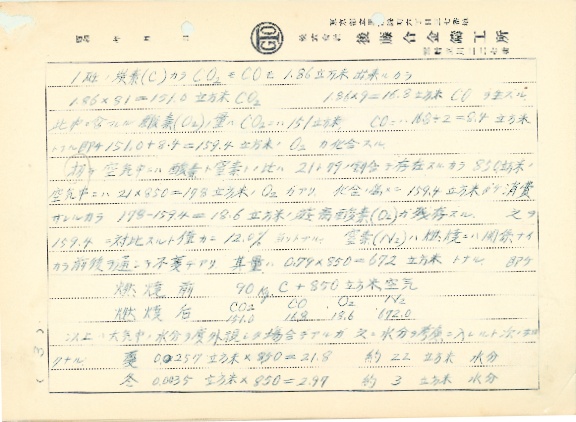 昭和 年 月 日
株式会社 後藤合金鋳工所
1瓩ノ炭素(C)カラ CO₂モCOモ 1.86立方米出来ルカラ
1.86×81=151.0 立方米 CO₂ 1.86×9=16.8立方米 CO ヲ生ズル
此中ニ含マレル酸素(O₂)ノ量ハCO₂ニハ151立方米 COニハ16.8÷2=8.4立方米
トナル即チ 151.0+8.4=159.4立方米ノ O₂ ガ化合スル
空気中ニハ酸素ト窒素トノ比ハ 21:79ノ割合デ存在スルカラ 850立方米ノ
空気中ニハ 21×850=178立方米ノO₂ガアリ 化合ノ為ニ 159.4立方米ダケ消費
サレルカラ 178-159.4=18.6立方米ノ酸素(O₂)ガ残存スル
159.4ニ対比スルト僅カニ12.0% トナル 窒素(N₂)ハ燃焼ニハ関係ナイ
カラ前後ヲ通ジテ不変デアリ 其量ハ 0.79×850=672 立方米トナル 即チ
燃焼前 90Kg C+850立方米空気
CO₂ CO O₂ N₂
燃焼后 151.0 16.8 18.6 672.0
以上ハ大気中ノ水分ヲ度外視シタ場合デアルガ 水分ヲ考慮ニ入レルト次ノ如
クナル 夏 0.0257立方米×850=21.8 約22立方米 水分
冬 0.0035立方米×850=2.99 約 3 立方米 水分
(3)